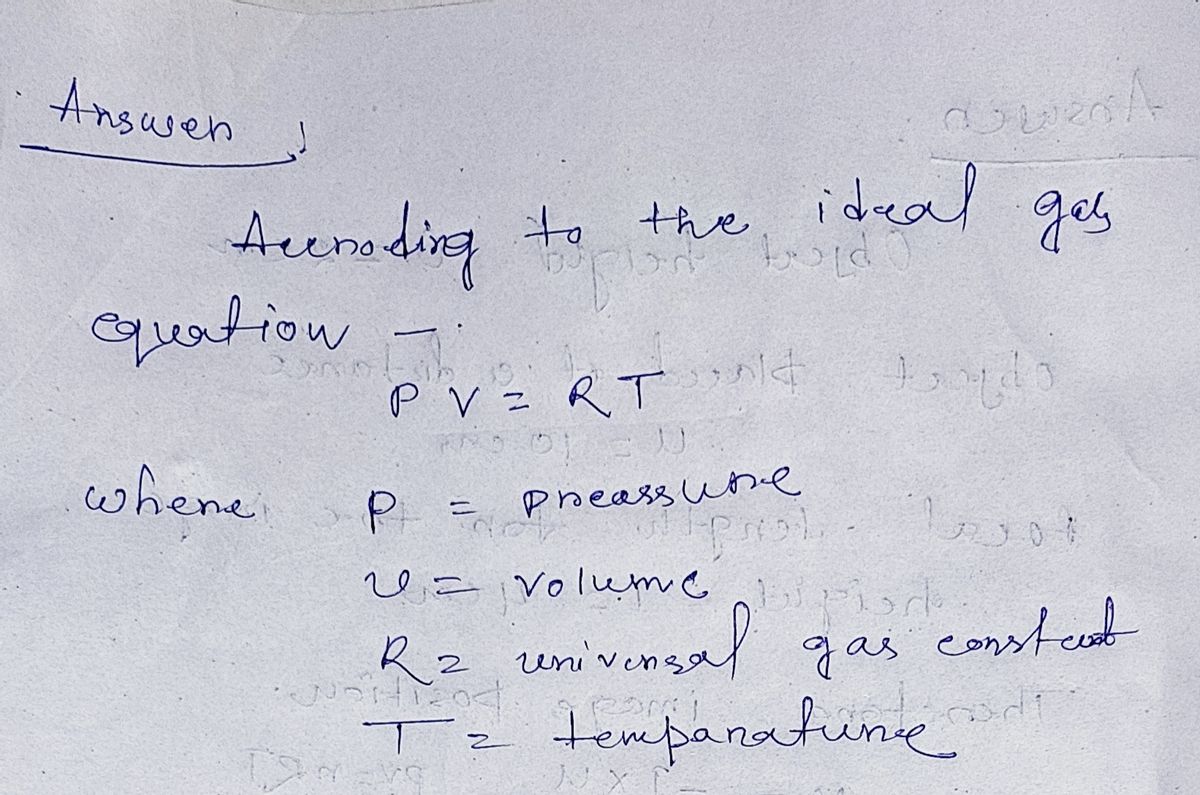 Answer
According to the ideal gas
equation -
PV = RT
where P = preassure
v = volume
R = universal gas constant
T = temparature